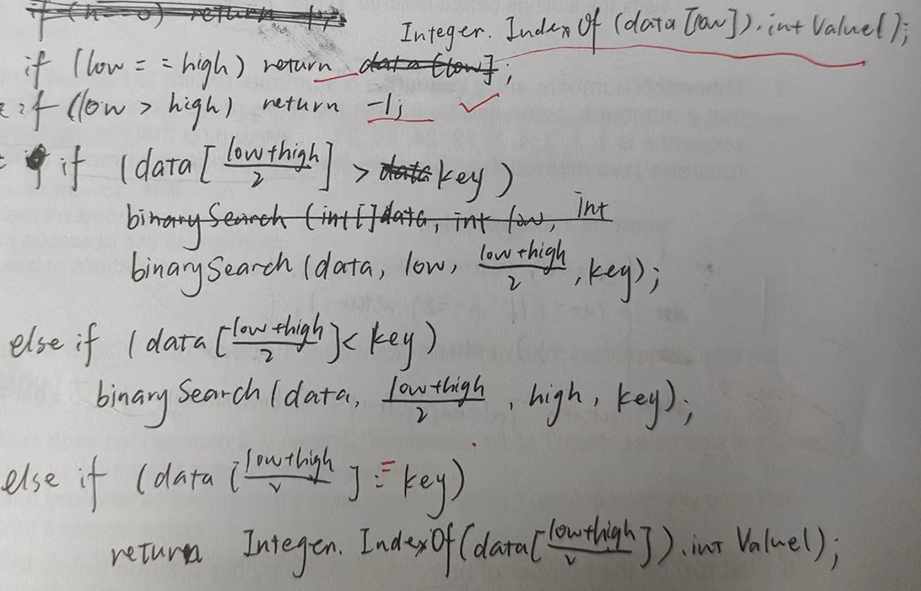 if (n == 0) return
Integer. IndexOf (data [low]). int Value();
if (low == high) return data [low];
if (low > high) return -1;
if (data [low+high/2] > data key)
binarySearch (int[] data, int low, int
binarySearch (data, low, low+high/2, key);
else if (data [low+high/2] < key)
binarySearch (data, low+high/2, high, key);
else if (data [low+high/2] == key)
return Integer. IndexOf (data [low+high/2]). int Value();